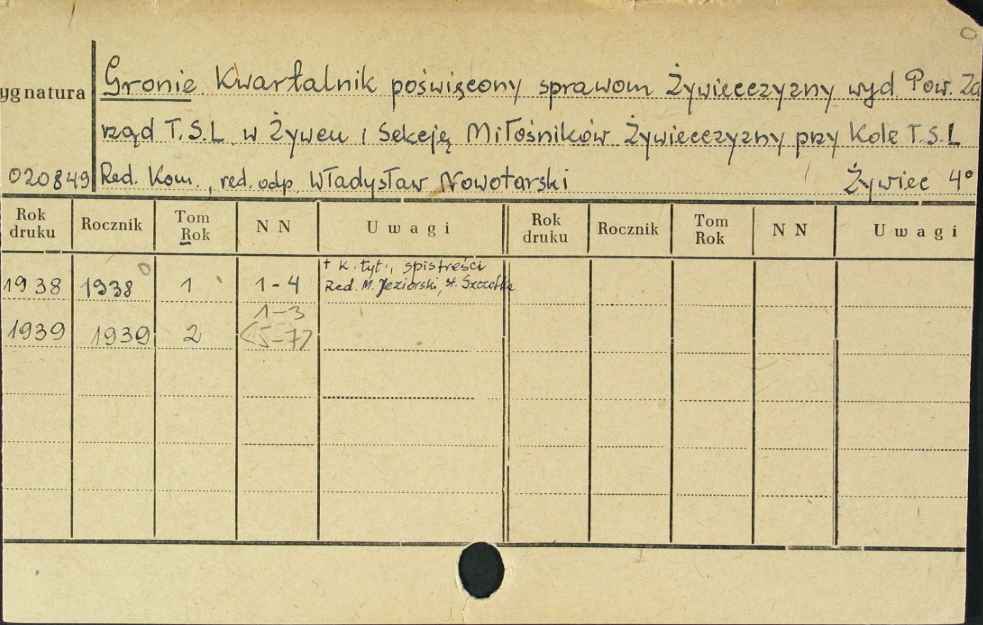 Gronie Kwartalnik poświęcony sprawom Żywiecczyzny wyd. Pow. Za
ygnatura
rząd T.S.L. w Żywcu i Sekcję Miłośników Żywiecczyzny przy Kole T.S.L
020849 Red. Kom., red. odp. Władysław Nowotarski Żywiec 4°
Rok druku Rocznik Tom Rok N N Uwagi Rok druku Rocznik Tom Rok N N Uwagi
+ k. tyt., spis treści
1938 1938 1 1-4 Red. M. Jeziorski, St. Szczotka
1-3
1939 1939 2 <5-7>